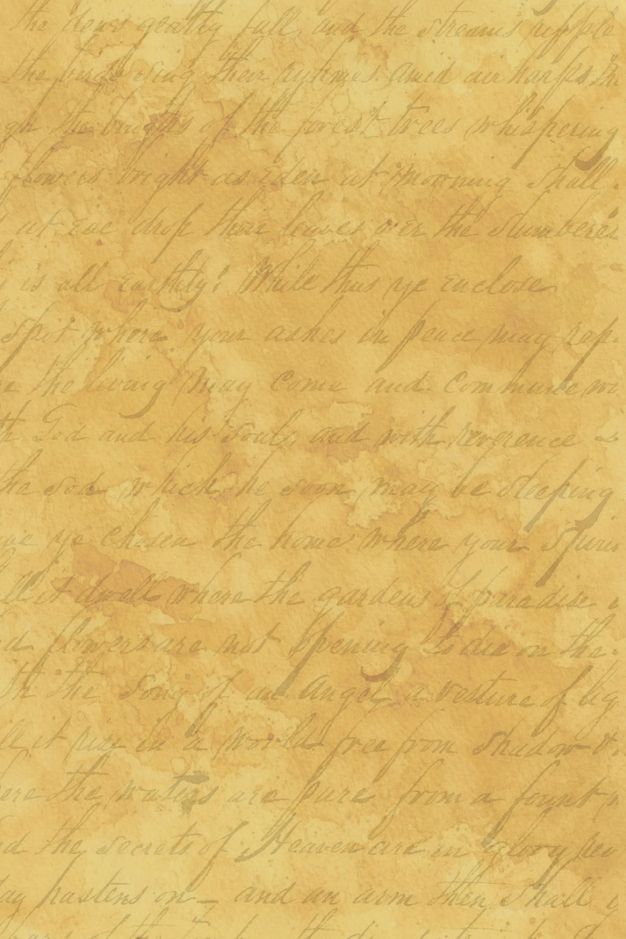 the dews gently fall, and the streams ripple
the birds sing their rytimes amid air harps
the boughs of the forest trees whispering
flowers bright as eden at morning shall
at eve drop their leaves o'er the slumberers
is all earthly! While thus ye enclose
spot where your ashes in peace may rep
the living may come and commune wi
God and his soul, and with reverence
the sod which he soon may be sleeping
ye chosen the home where your spiri
it dwell where the gardens of paradise
flowers are not opening to die on the
the song of an Angel a vesture of lig
it be in a world free from shadow &
the waters are pure from a fount
the secrets of Heaven are in glory rev
hastens on — and an arm then shall